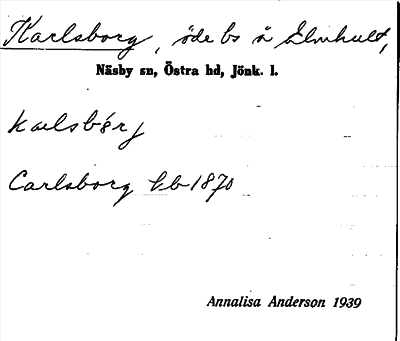 Karlsborg, öde bs å Elmhult,
Näsby sn, Östra hd, Jönk. l.
kalsbórj
Carlsborg hb 1870
Annalisa Anderson 1939